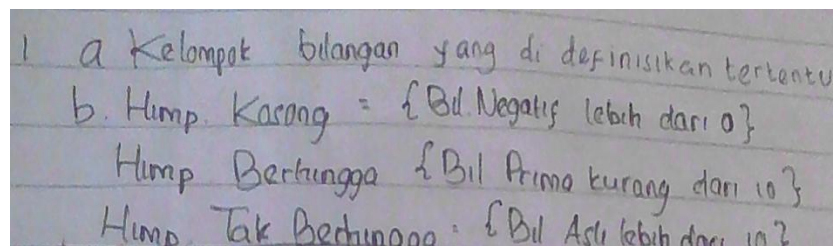 1 a Kelompok bilangan yang di definisikan tertentu
b. Himp. Kosong = {Bil. Negatif lebih dari 0}
Himp Berhingga {Bil Prima kurang dari 10}
Himp Tak Berhingga = {Bil Asli lebih dari 10}